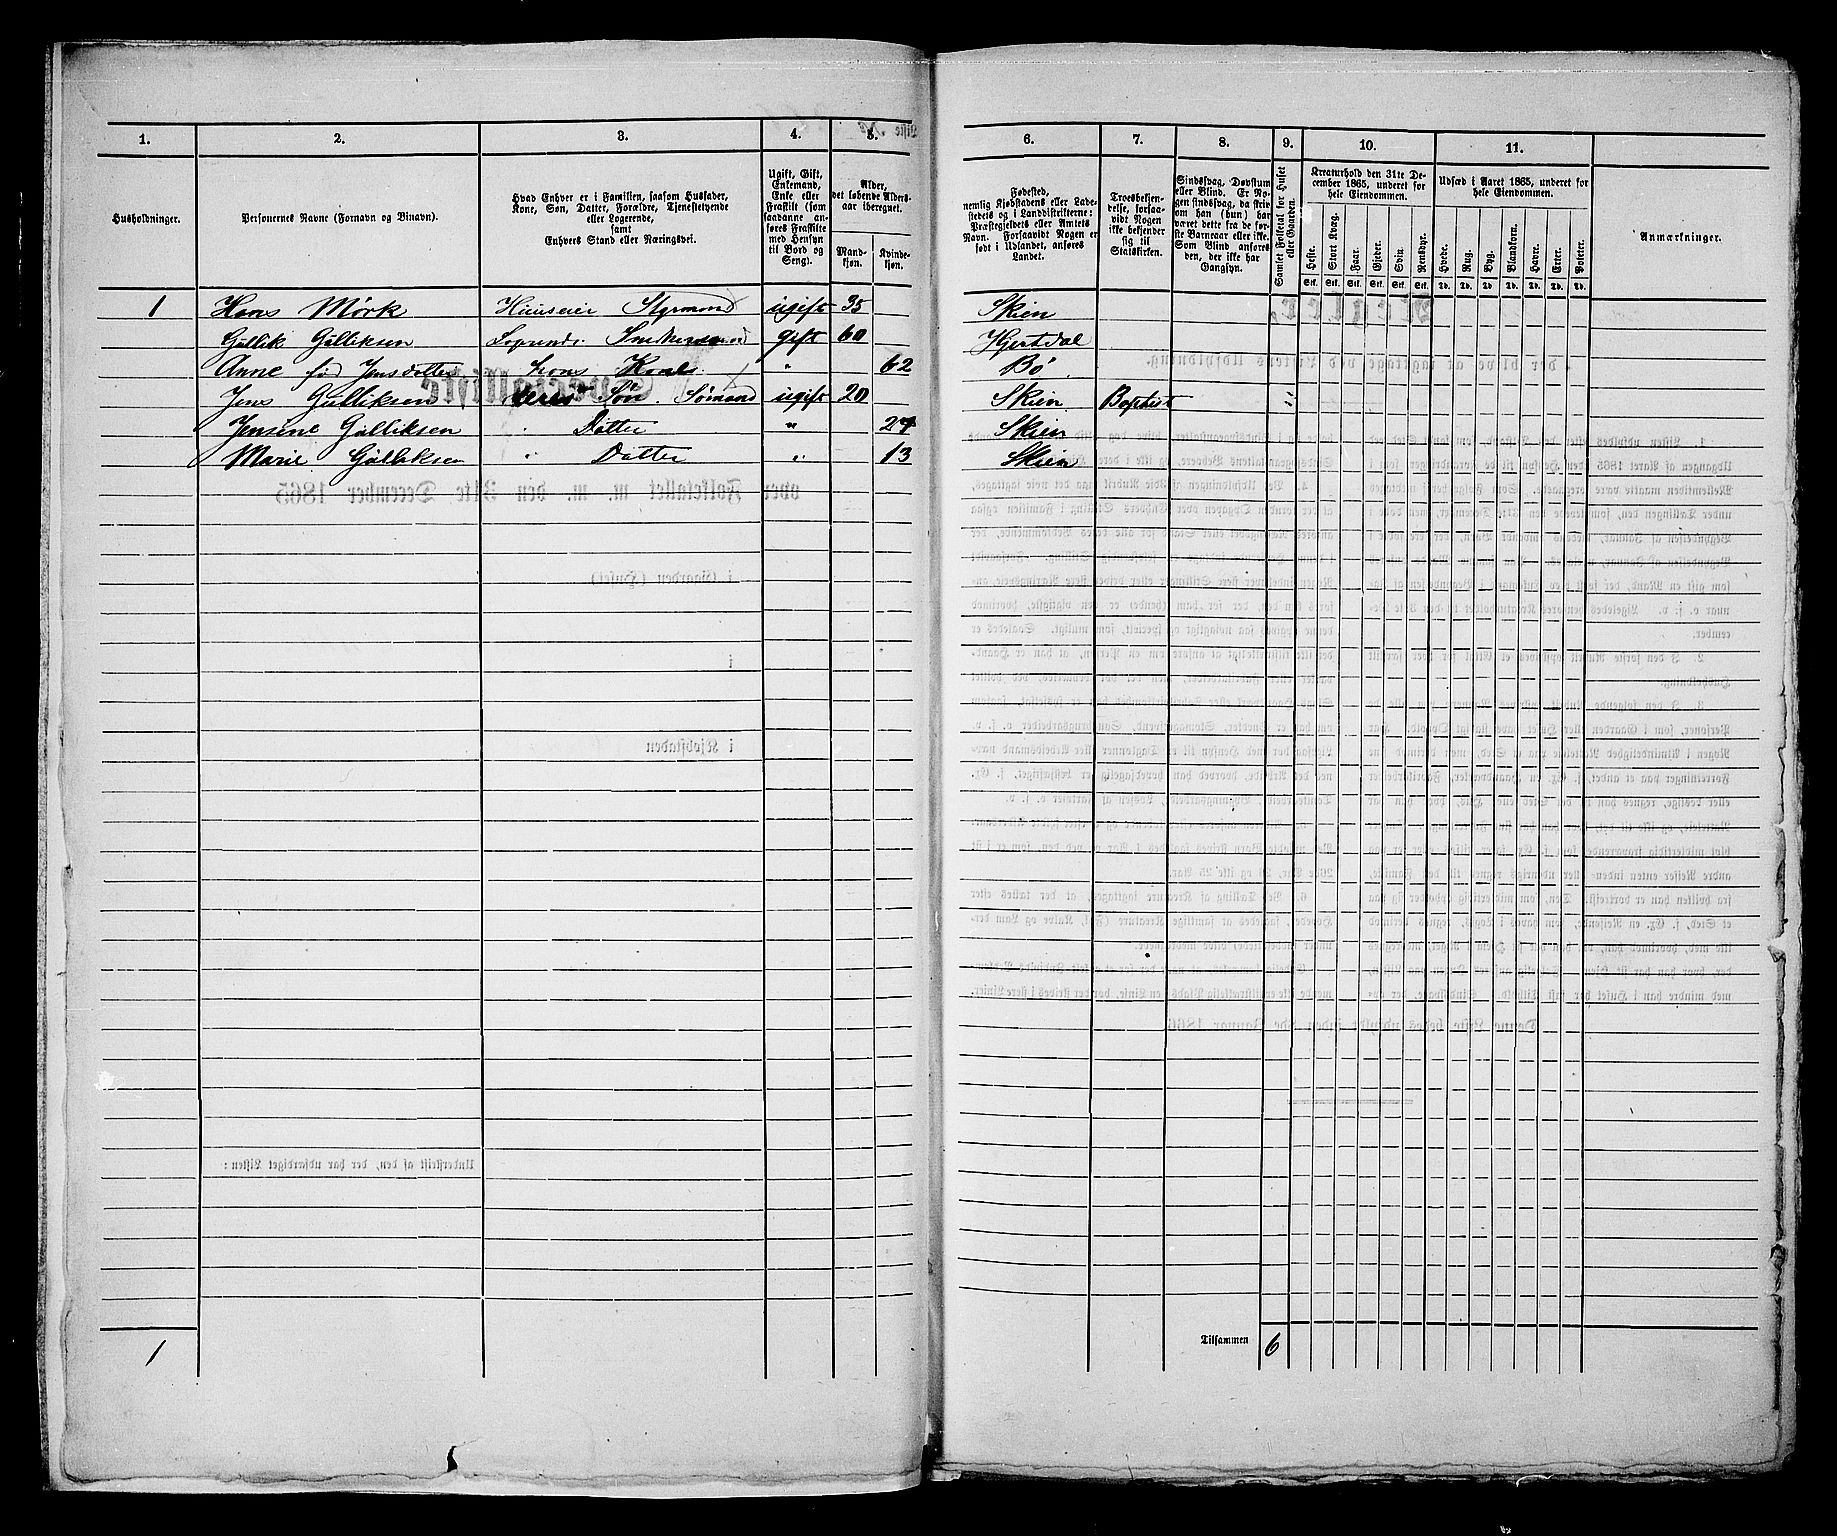 1. 2. 3. 4. 5. 6. 7. 8. 9. 10. 11.
Husholdninger.
Personernes Navne (Fornavn og Binavn).
Hvad Enhver er i Familien, saasom Husfader,
Kone, Søn, Datter, Forældre, Tjenestetyende
eller Logerende,
samt
Enhvers Stand eller Næringsvei.
Ugift, Gift,
Enkemand,
Enke eller
Fraskilt (som
saadanne an-
føres Fraskilte
med Hensyn
til Bord og
Seng).
Alder,
det løbende Alders-
aar iberegnet.
Mand-
kjøn.
Kvinde-
kjøn.
Fødested,
nemlig Kjøbstadens eller Lade-
stedets og i Landdistrikterne:
Præstegjeldets eller Amtets
Navn. Forsaavidt Nogen er
født i Udlandet, anføres
Landet.
Troesbekjen-
delse, forsaa-
vidt Nogen
ikke bekjender
sig til
Statskirken.
Sindssvag, Døvstum
eller Blind. Er No-
gen sindssvag, da skriv
om han (hun) har
været dette fra de før-
ste Barneaar eller ikke.
Som Blind anføres
den, der ikke har
Gangsyn.
Samlet Folketal for Huset
eller Gaarden.
Kreaturhold den 31te De-
cember 1865, underet for
hele Eiendommen.
Heste. Stort Kvæg. Faar. Gjeder. Svin. Rensdyr.
Stk. Stk. Stk. Stk. Stk. Stk.
Udsæd i Aaret 1865, underet for
hele Eiendommen.
Hvede. Rug. Byg. Blandkorn. Havre. Erter. Poteter.
Td. Td. Td. Td. Td. Td. Td.
Anmærkninger.
1 Hans Mörk Huuseier Styrmand ugift 35 Skien
Gullik Gulliksen gift 60 Hjertdal
Anne fød Jensdatter hans Kone " 62 Bö
Jens Gulliksen Søn Sømand ugift 20 Skien Baptist
Jensine Gulliksen " Datter " Skien
Marie Gulliksen " Datter " 13 Skien
1 Tilsammen 6